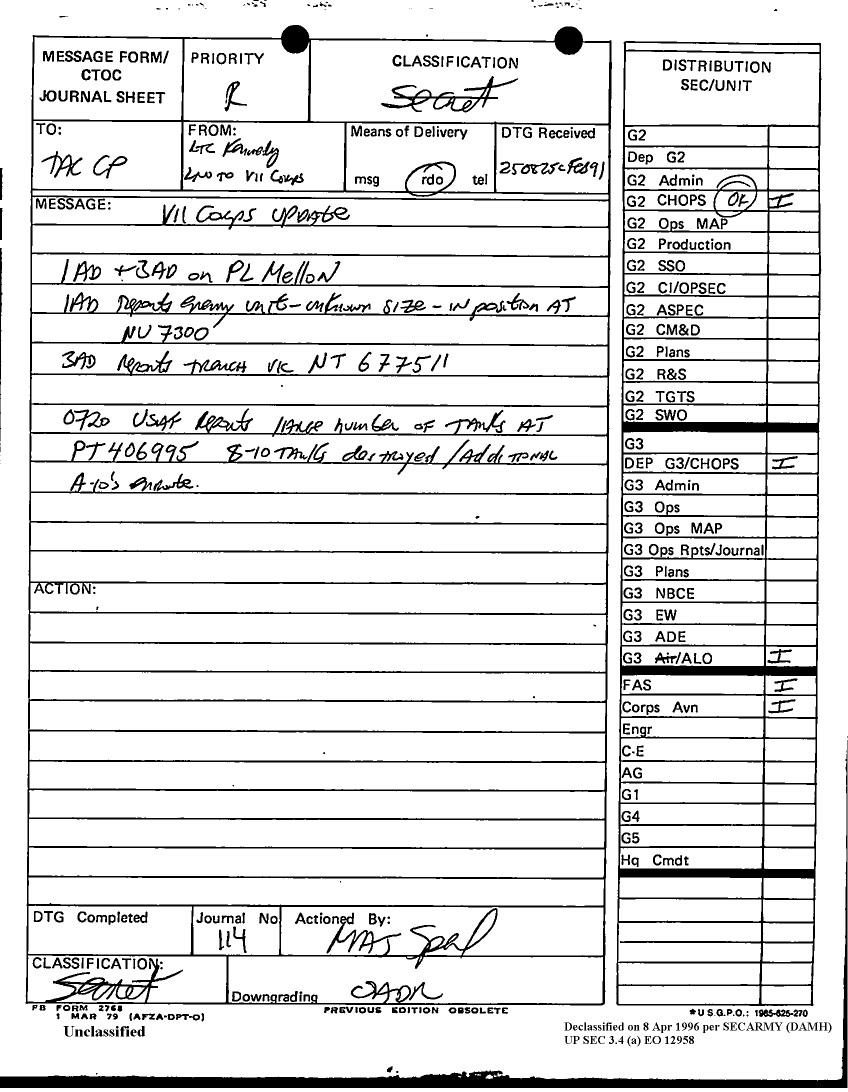 MESSAGE FORM/
CTOC
JOURNAL SHEET
PRIORITY
R
CLASSIFICATION
Secret
TO:
TAC CP
FROM:
LTC Kennedy
LNO TO VII Corps
Means of Delivery
msg rdo tel
DTG Received
250825CFeb91
MESSAGE:
VII Corps UPDATE
1AD + 3AD on PL Mellon
1AD Reports enemy unit - unknown size - in position AT
NU 7300
3AD Reports trench vic NT 677511
0720 USAF Reports large number of TANKS AT
PT406995 8-10 TANKS destroyed / Additional
A-10's enroute.
ACTION:
DTG Completed
Journal No
114
Actioned By:
MAJ
CLASSIFICATION:
Secret
Downgrading OADR
FB FORM 2768
1 MAR 79 (AFZA-DPT-O)
PREVIOUS EDITION OBSOLETE
Unclassified
DISTRIBUTION
SEC/UNIT
G2
Dep G2
G2 Admin
G2 CHOPS OK I
G2 Ops MAP
G2 Production
G2 SSO
G2 CI/OPSEC
G2 ASPEC
G2 CM&D
G2 Plans
G2 R&S
G2 TGTS
G2 SWO
G3
DEP G3/CHOPS I
G3 Admin
G3 Ops
G3 Ops MAP
G3 Ops Rpts/Journal
G3 Plans
G3 NBCE
G3 EW
G3 ADE
G3 Air/ALO I
FAS I
Corps Avn I
Engr
C-E
AG
G1
G4
G5
Hq Cmdt
*U.S.G.P.O.: 1985-625-270
Declassified on 8 Apr 1996 per SECARMY (DAMH)
UP SEC 3.4 (a) EO 12958